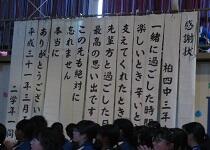 感謝状
柏四中三年
一緒に過ごした時間
楽しいとき辛いと
支えてくれたとき
先輩方と過ごした日
最高の思い出です
この先も絶対に
忘れません
本当に
ありがとうございま
平成二十一年三月
二学年一同